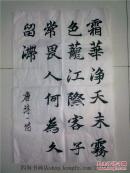 霜華淨天末霧
色籠江際客子
常畏人何為久
留滯